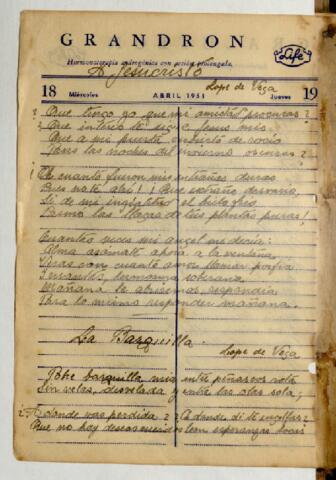 GRANDRON
Life
Hormonoterapia androgénica con acción prolongada.
A Jesucristo
18 Miércoles ABRIL 1951 Jueves 19
Lope de Vega
¿Que tengo yo que mi amistad procuras?
¿Que interés te sigue Jesus mio
Que a mi puerta cubierto de rocio
Pasas las noches del invierno oscuras?
¡Oh cuanto fueron mis entrañas duras
Pues no te abrí! ¡Que extraño desvario
Si de mi ingratitud el hielo frio
las llagas de tus plantas puras!
Cuantas veces mi angel me decia:
Alma asomate ahora a la ventana
Veras con cuanto amor llamar porfia
Y cuantas, hermosura soberana
Mañana le abriremos, respondia
Para lo mismo responder mañana.
La Barquilla
Lope de Vega
Pobre barquilla mia, entre peñascos rota
Sin velas, desvelada y entre las olas sola;
¿A donde vas perdida? ¿A donde, di te engolfas?
Que no hay deseos cuerdos con esperanzas locas